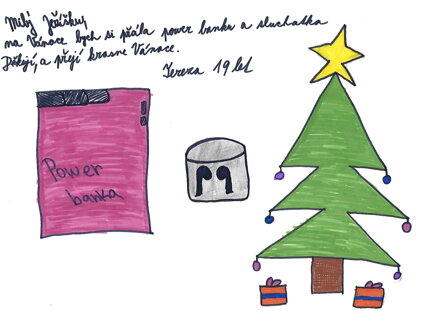 Milý Ježíšku,
na Vánoce bych si přála power banku a sluchátka
Děkuji, a přeji krásné Vánoce.
Tereza 19 let
Power
banka